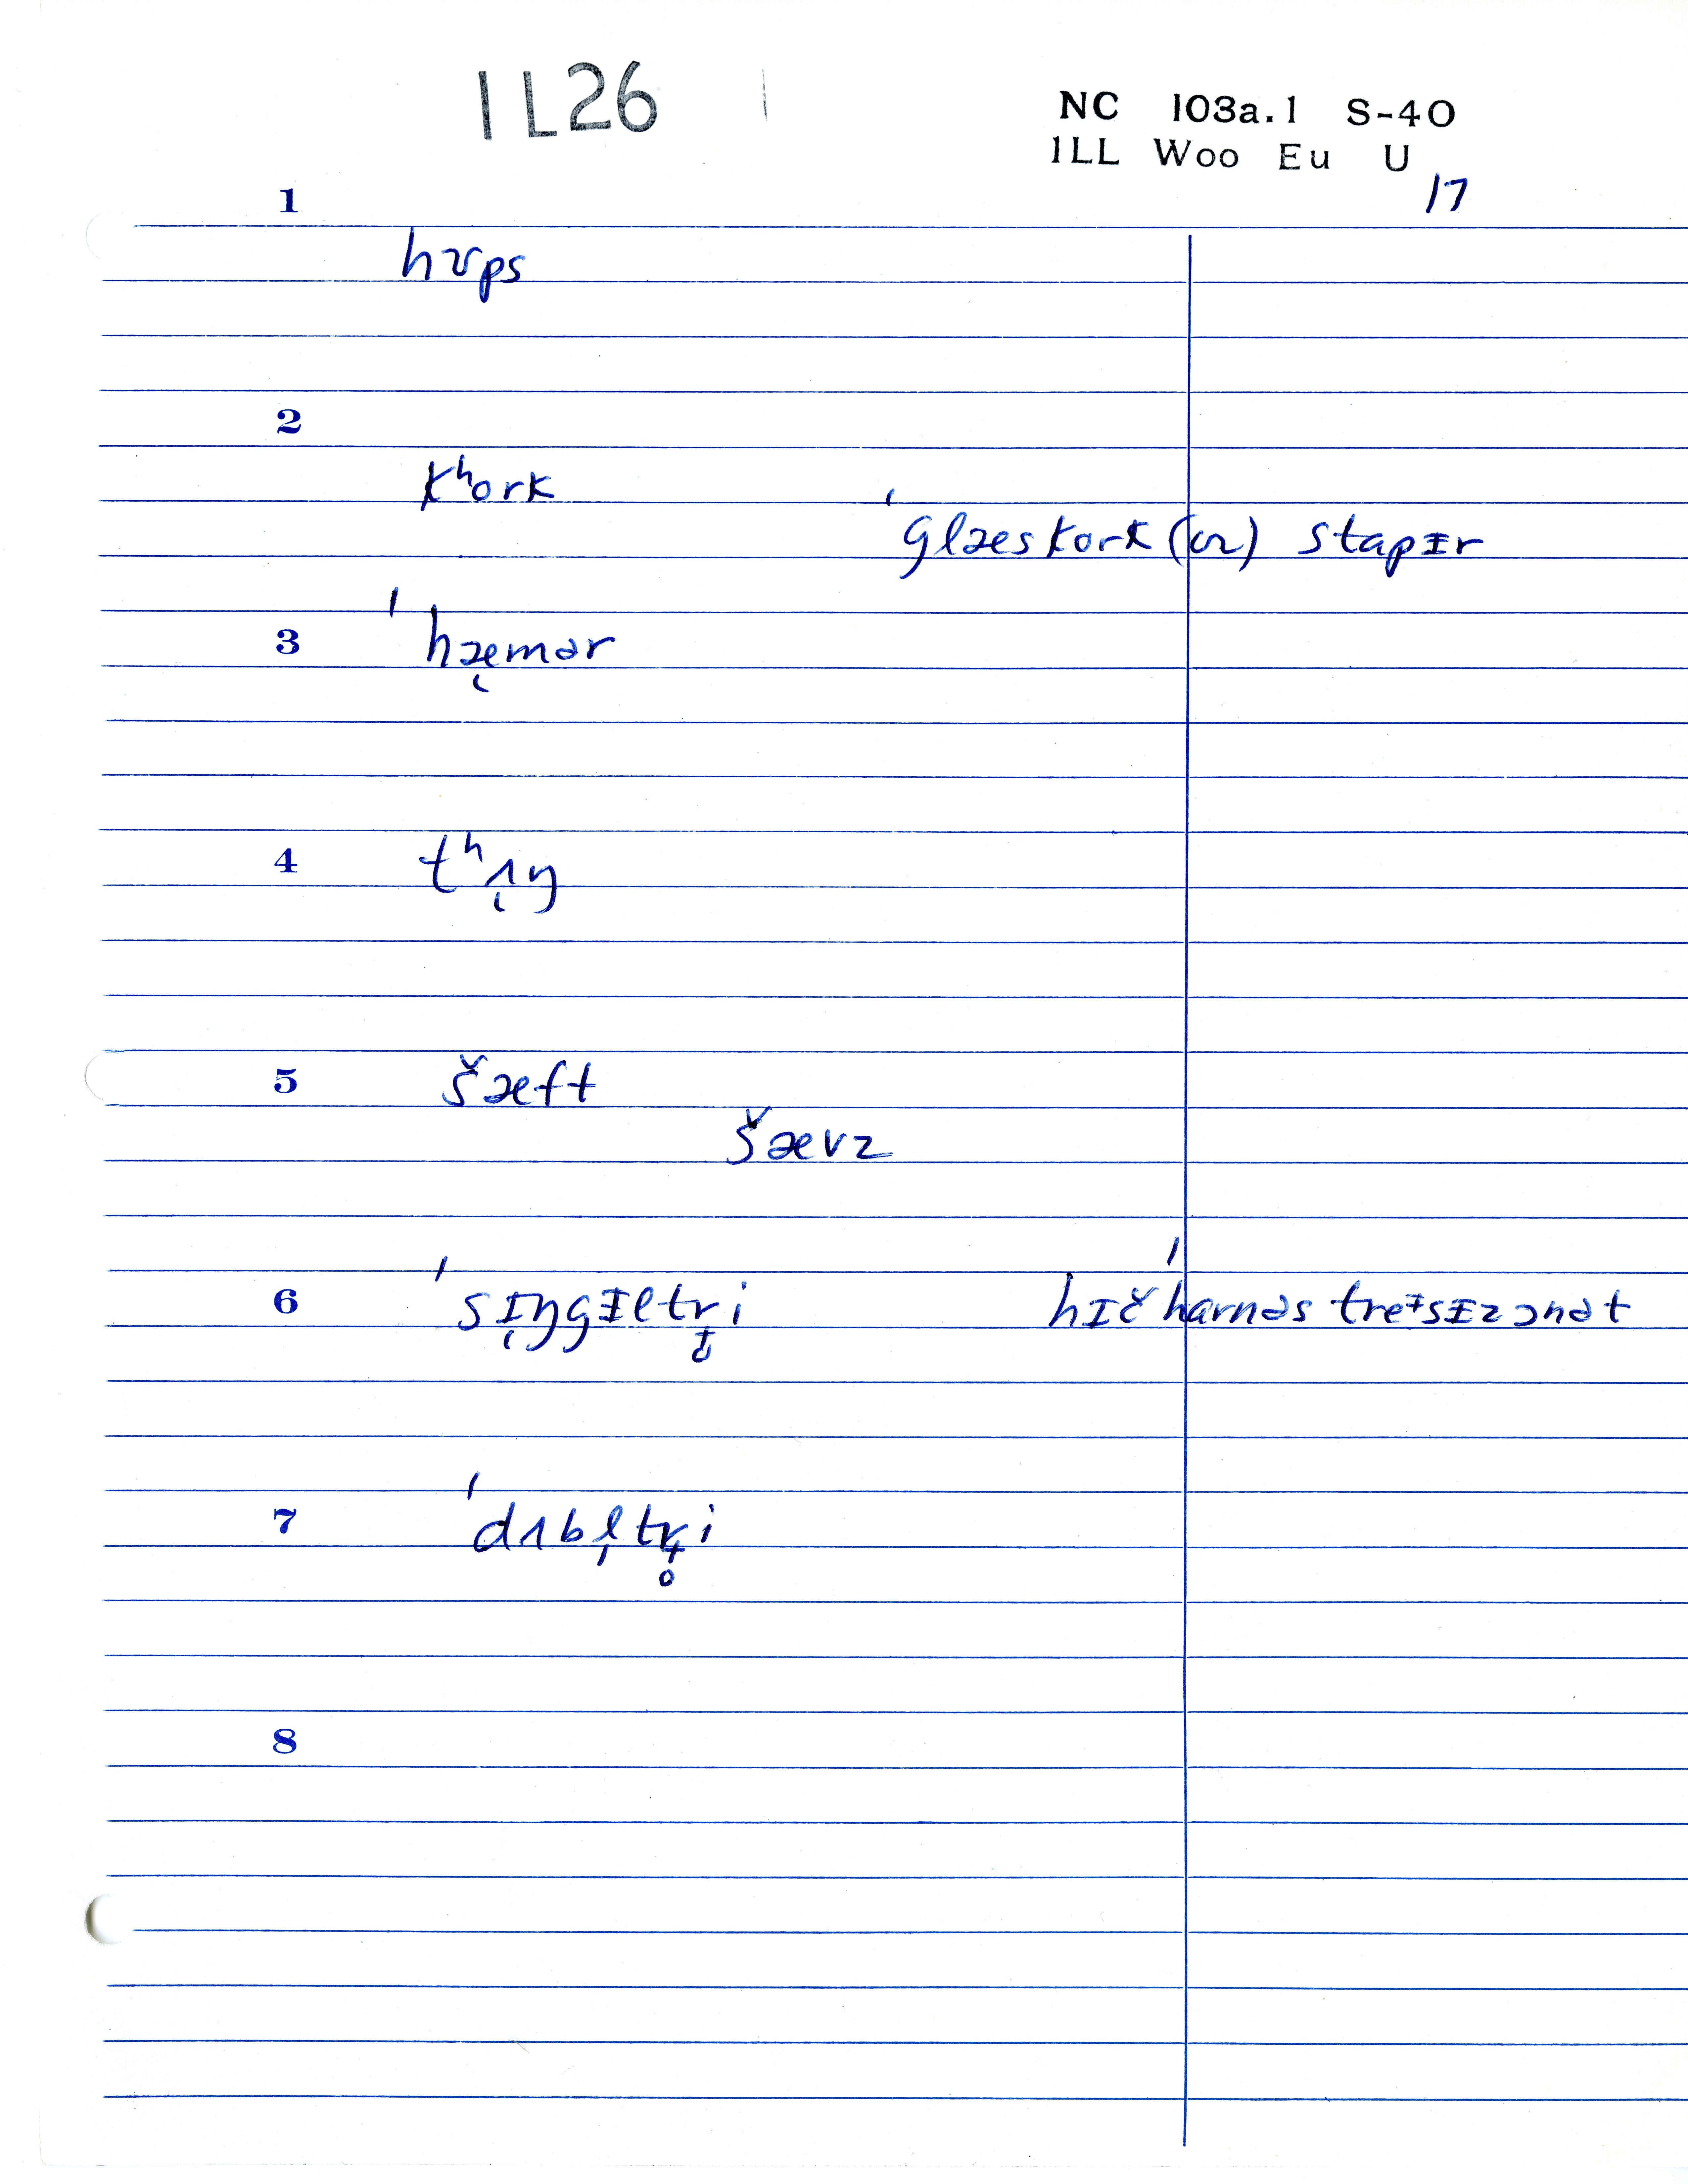 1L26
NC 103a.1 S-40
1LL Woo Eu U
17
1
hʊps
2
kʰork
ˈglæskork (or) stapɪr
3 ˈhæ̨mər
4 tʰʌ̨ŋ
5 šæft
šævz
6 ˈsɪ̨ŋgɪltr̥i hɪčˈharnəs treᵻsɪzɔnət
7 ˈdʌbl̩tr̥i
8